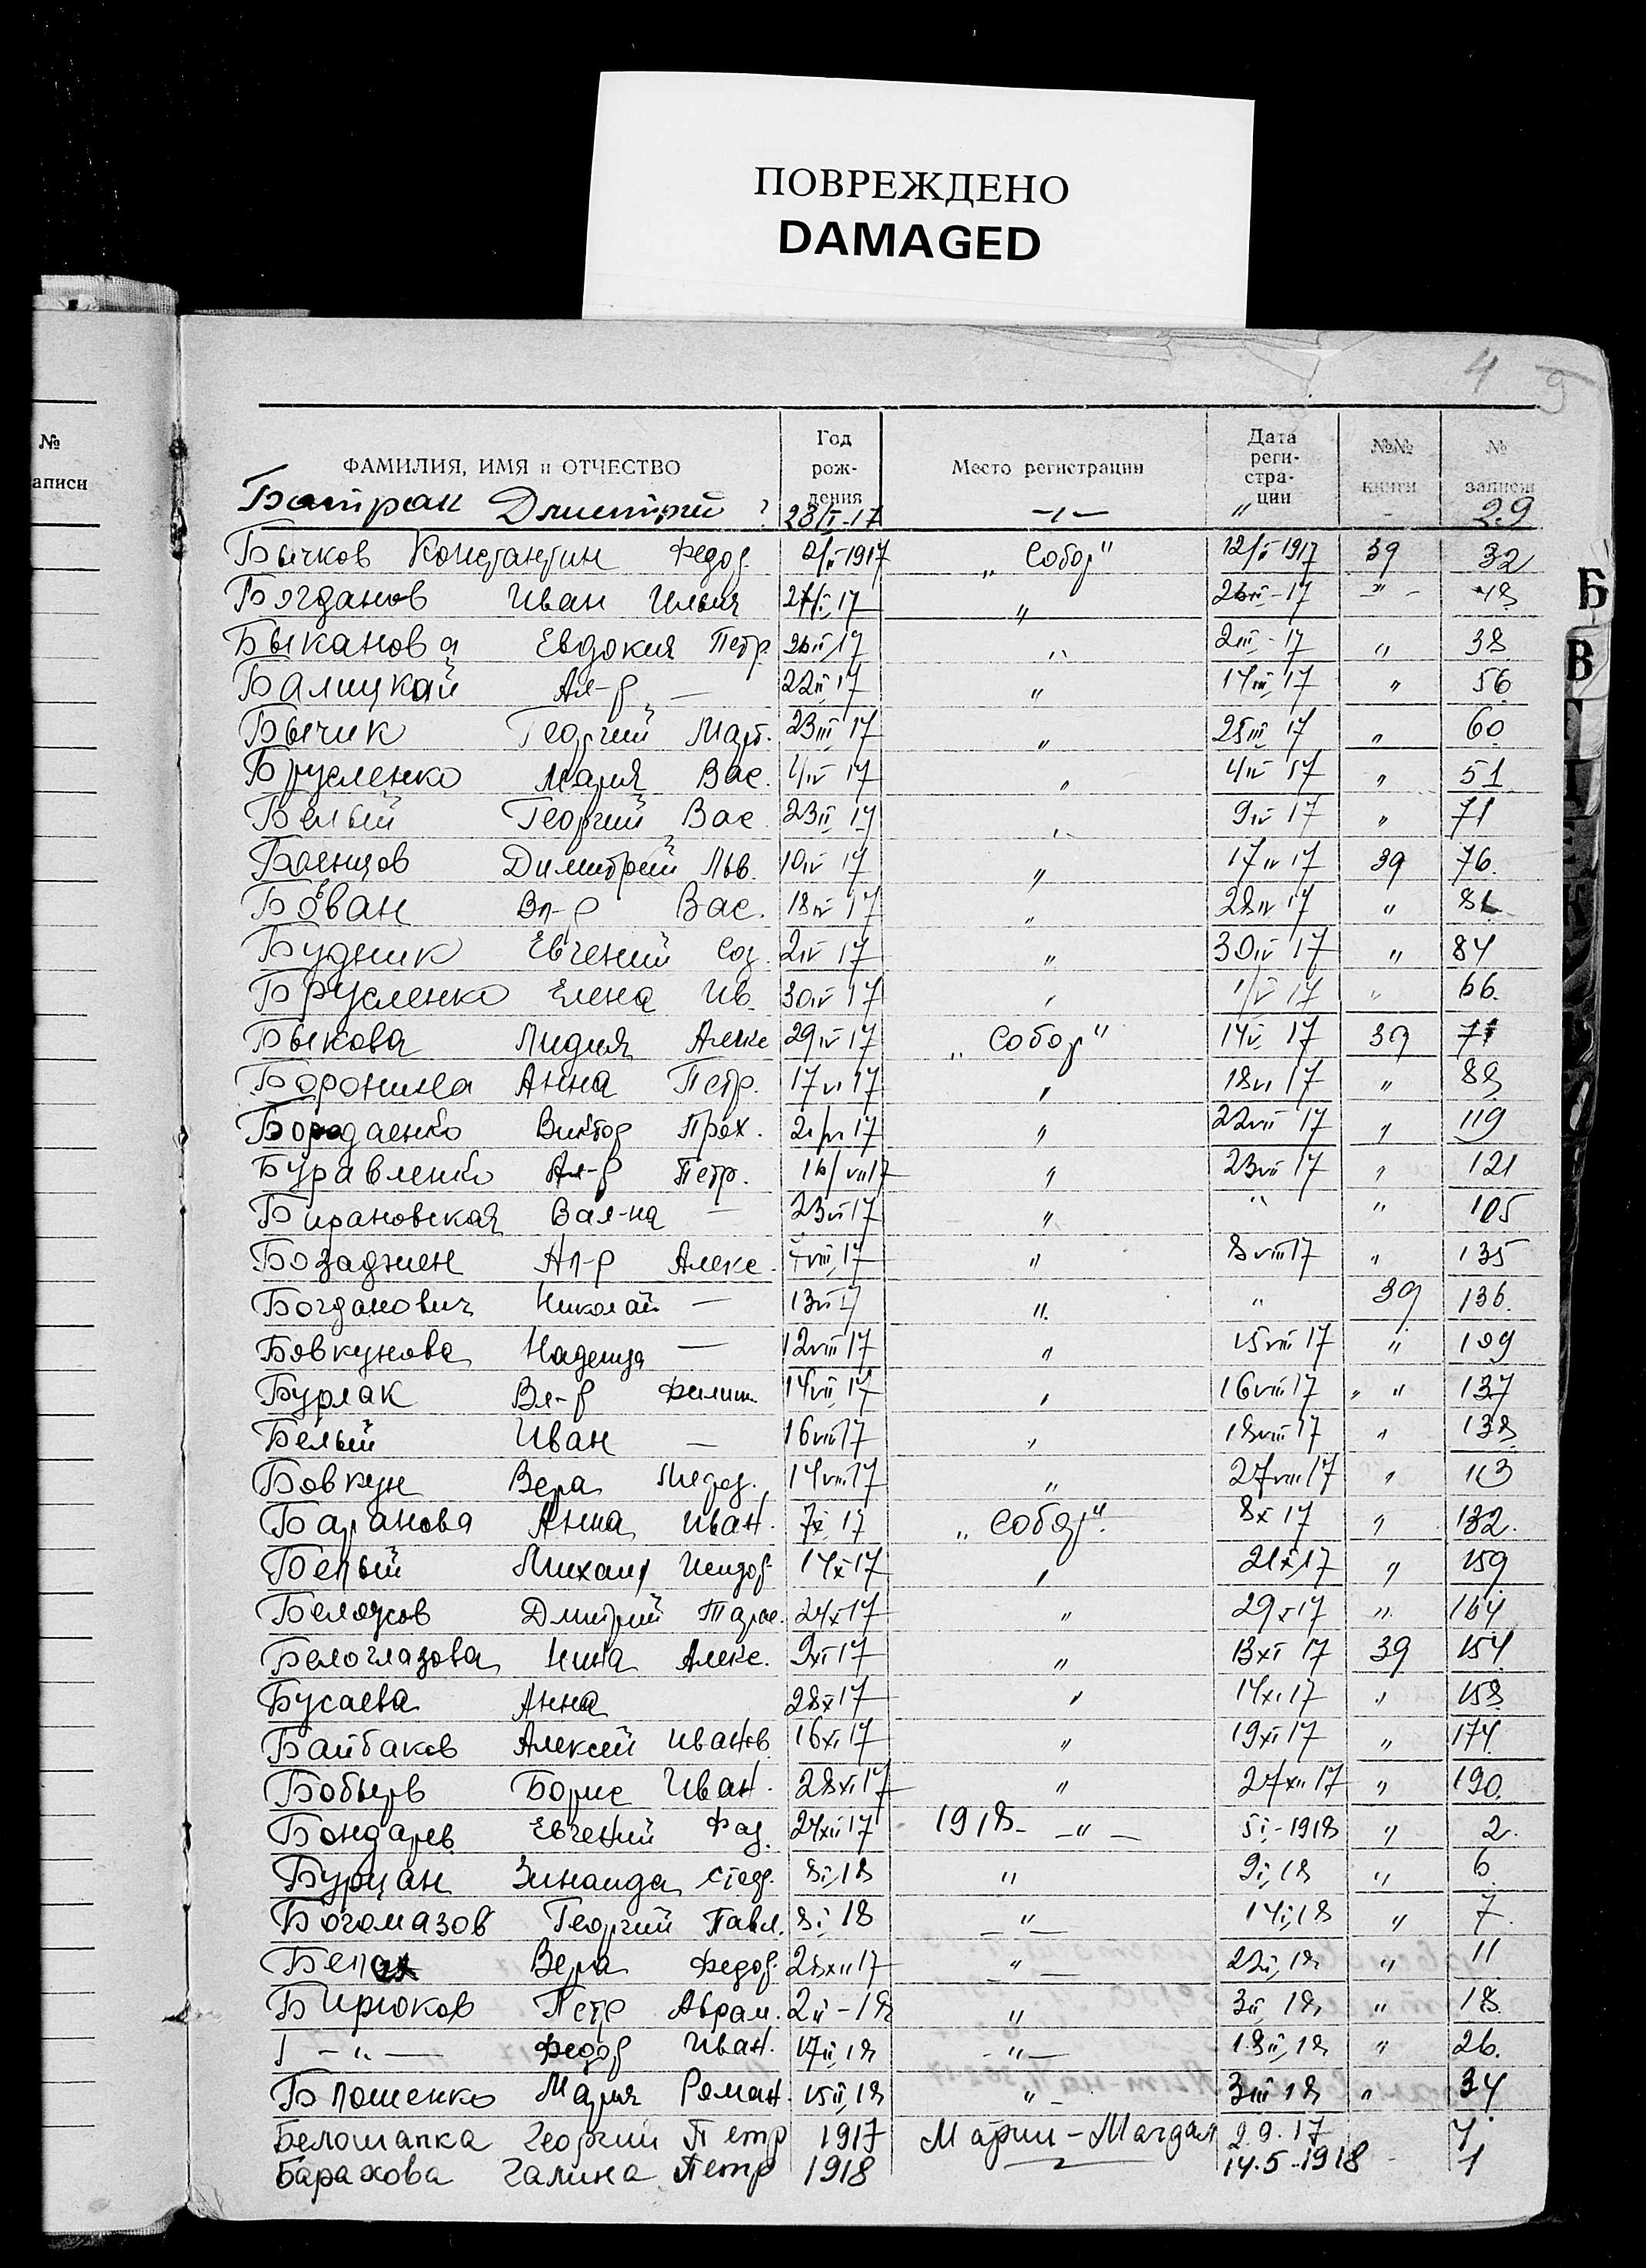 ПОВРЕЖДЕНО
DAMAGED
4 9
№
аписи
ФАМИЛИЯ, ИМЯ и ОТЧЕСТВО Год рождения Место регистрации Дата регистрации №№ книги № записи
Батрак Дмитрий ? 28/I-17 -"- " - 29
Бычков Константин Федор. 2/II-1917 „Собор" 12/II 1917 39 32
Богданов Иван Ильич 17 " 17 " 48
Быканова Евдокия Петр. 26II,17 " 2III-17 " 38
Балицкай Ал-р — 22II,17 " 14III,17 " 56
Бычик Георгий Март. 23III 17 " 25III 17 " 60
Брусленко Мария Вас. 1/IV 17 " 4IV 17 " 51
Белый Георгий Вас. 23II 17 " 9IV 17 " 71
Димитрий Льв. 10IV 17 " 17IV 17 39 76
Бован Вл-р Вас. 18IV 17 " 28IV 17 " 81
Будник Евгений Соз. 2IV 17 " 30IV 17 " 84
Брусленко Елена Ив. 30IV 17 " 1/V 17 " 66.
Быкова Лидия Алекс 29IV 17 „Собор" 14V 17 39 71
Воронина Анна Петр. 17VI 17 " 18VI 17 " 88
Бородаенко Виктор Прох. 17 " 22VII 17 " 119
Буравленко Ал-р Петр. 16/VII17 " 23VII 17 " 121
Бирановская Вал-на — 23VI17 " " " 105
Бозаджиен Ал-р Алекс. VIII,17 " 8VIII17 " 135
Богданович Николай — 13VI17 " " 39 136.
Бовкунова Надежда — 12VIII 17 " 15VIII 17 " 109
Бурлак Вл-р Филип. 14VII,17 " 16VIII17 " " 137
Белый Иван — 16VIII17 " 18VIII17 " 138
Бовкун Вера 14VIII17 " 27VIII17 " 113
Баранова Анна Иван. 7X,17 „Собор". 8X 17 " 132.
Белый Михаил Исидор 14X17 " 21X,17 " 159
Белоусов Дмитрий Тарас. 24X17 " 29X17 " 164
Белоглазова Нина Алекс. 9XI17 " 13XI 17 39 154
Бусаева Анна 28X17 " 14XI17 " 158
Байбаков Алексей Иванов. 16XI17 " 19XI17 " 174
Бобырв Борис Иван. 28XI17 " 27XII17 " 190.
Бондарев Евгений 24XII17 1918- -"- 5I-1918 " 2.
Бурцан Зинаида 8I,18 " 9I,18 " 6
Богомазов Георгий Павл. 8I 18 " 14I,18 " 7.
Вера Федор. 28XII17 " 22I,18 " 11
Бирюков Петр Абрам. 2II-18 " 3II,18 " 18
-"- Федор Иван. 17II,18 -"- 18II,18 " 26.
Блошенко Мария Роман. 15II,18 " 3III 18 " 34
Белошапка Георгий Петр 1917 Марии-Магдал 2.9.17 4
Барахова Галина Петр 1918 14.5-1918 - 1
Б
В